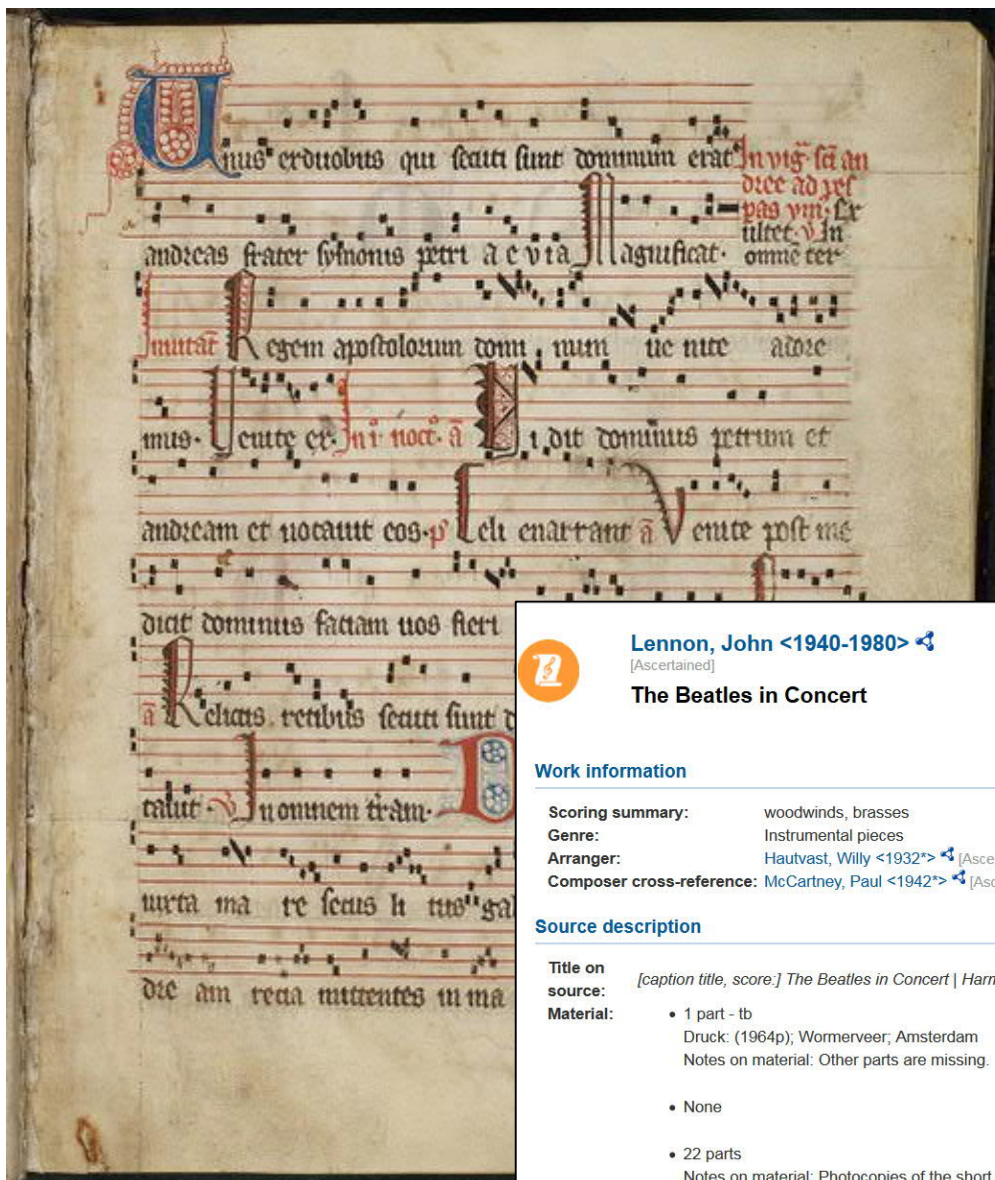 Unus erduobus qui secuti sunt dominum erat
In vigˉ scī an
dree ad ves
pas ym̄. Ex
ultet. V̄ In
omnē ter
andreas frater symonis petri a e v i a Magnificat.
Inuitat̄ Regem apostolorum domi num ue nite adore
mus. Uenite ex. In iº noct̄. ā Vi dit dominus petrum et
andream et uocauit eos. pˢ Celi enarrant ā Venite post me
dicit dominus faciam uos fieri
ā Relictis retibus secuti sunt d
V̄ In omnem tr̄am. D
iuxta ma re secus li tus gal
dre am retia mittentes in ma
Lennon, John <1940-1980>
[Ascertained]
The Beatles in Concert
Work information
Scoring summary: woodwinds, brasses
Genre: Instrumental pieces
Arranger: Hautvast, Willy <1932*> [Asce
Composer cross-reference: McCartney, Paul <1942*> [Asc
Source description
Title on source: [caption title, score:] The Beatles in Concert | Harn
Material:
• 1 part - tb
Druck: (1964p); Wormerveer; Amsterdam
Notes on material: Other parts are missing.
• None
• 22 parts
Notes on material: Photocopies of the short